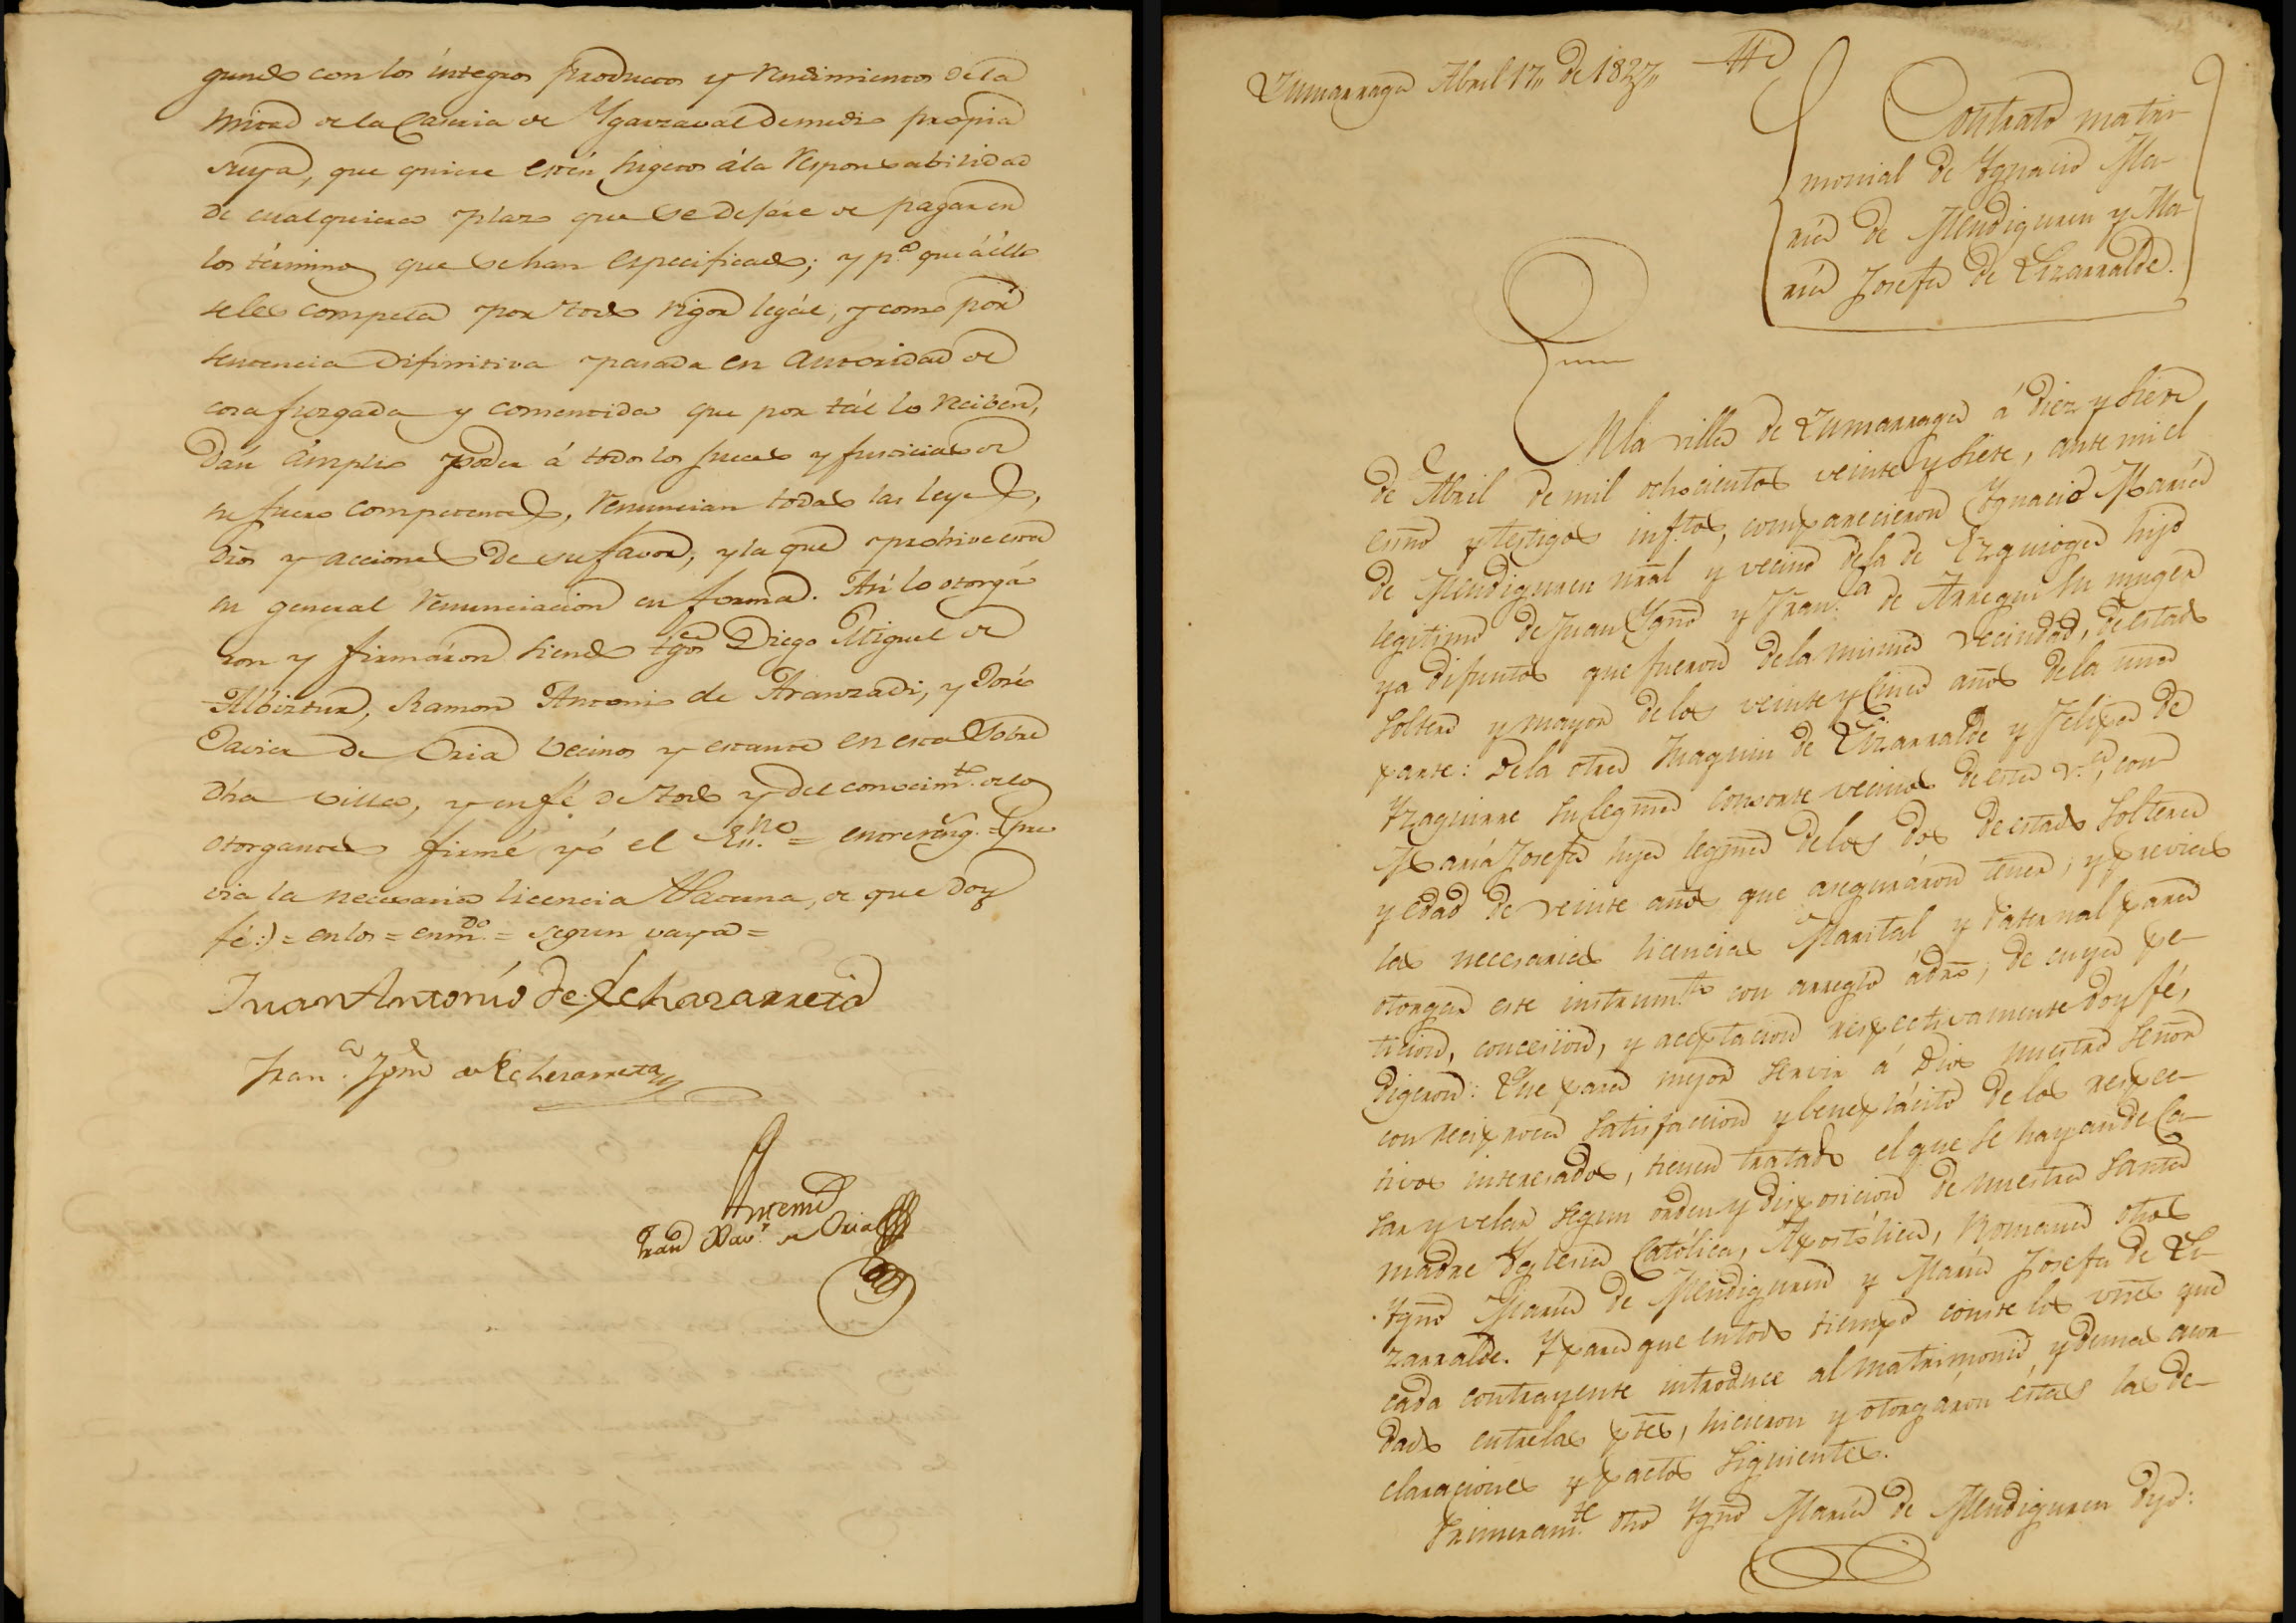 gundo con los íntegros productos y rendimientos de la
mitad de la Caseria de Ygarzaval de medio propia
suya, que quiere estén sugetos á la responsabilidad
de cualquiera plazo que se dejáre de pagar en
los términos que se han especificado; y p.ª que á ello
se les competa por todo rigor legál, y como por
sentencia difinitiva pasada en autoridad de
cosa juzgada y consentida que por tál lo reciben,
Dán ámplio poder á todos los jueces y justicias de
su fuero competentes, renuncian todas las leyes,
dros y acciones de su favor, y la que prohive esta
su general renunciacion en forma. Asi lo otorgá
ron y firmáron siendo tgos Diego Miguel de
Albiztur, Ramon Antonio de Aranzadi, y José
Javier de Oria vecinos y estante en esta sobre
dha villa, y en fé de todo y del conocim.to de los
otorgantes firmé yó el Es.no = entrereng.s = (pre
via la necesaria licencia Marital, de que doy
fé:) = en los = enm.do = segun vaya =
Juan Antonio de Echazarreta
Fran.ca Ygn.a de Echezarreta
Antemi
Juan Xav.r de Oria
Zumarraga Abril 17,, de 1827,,
Contrato matri-
monial de Ygnacio Ma-
ria de Mendiguren y Ma-
ria Josefa de Lizarralde.
En la villa de Zumarraga á diez y siete
de Abril de mil ochocientos veinte y siete, ante mi el
essno y testigos inf.tos, comparecieron Ygnacio Maria
de Mendiguren nral y vecino de la de Ezquioga hijo
legitimo de Juan Ygno y Fran.ca de Arregui su muger
ya difuntos que fueron de la misma vecindad, de estado
soltero y mayor de los veinte y cinco años de la una
parte: de la otra Juaquin de Lizarralde y Felipa de
Yzaguirre su legma consorte vecinos de esta v.ª, con
Maria Josefa hija legma de los dos de estado soltera
y edad de veinte años que aseguráron tener; y previas
las necesarias licencias Marital y Paternal para
otorgar este instrum.to con arreglo á dro, de cuya pe-
ticion, concesion, y aceptacion respectivamente doy fé,
digeron: Que para mejor servir á Dios nuestro Señor
con reciproca satisfaccion y beneplácito de los respec-
tivos interesados, tienen tratado el que se hayan de Ca-
sar y velar segun orden y disposicion de nuestra Santa
madre Yglesia Católica, Apostólica, Romana dhos
Ygno Maria de Mendiguren y Maria Josefa de Li-
zarralde. Y para que en todo tiempo conste los vnes que
cada contrayente introduce al matrimonio, y demas acor
dado entre las ptes, hicieron y otorgáron éstas las de-
claraciones y pactos siguientes.
Primeram.te dho Ygno Maria de Mendiguren dijo: